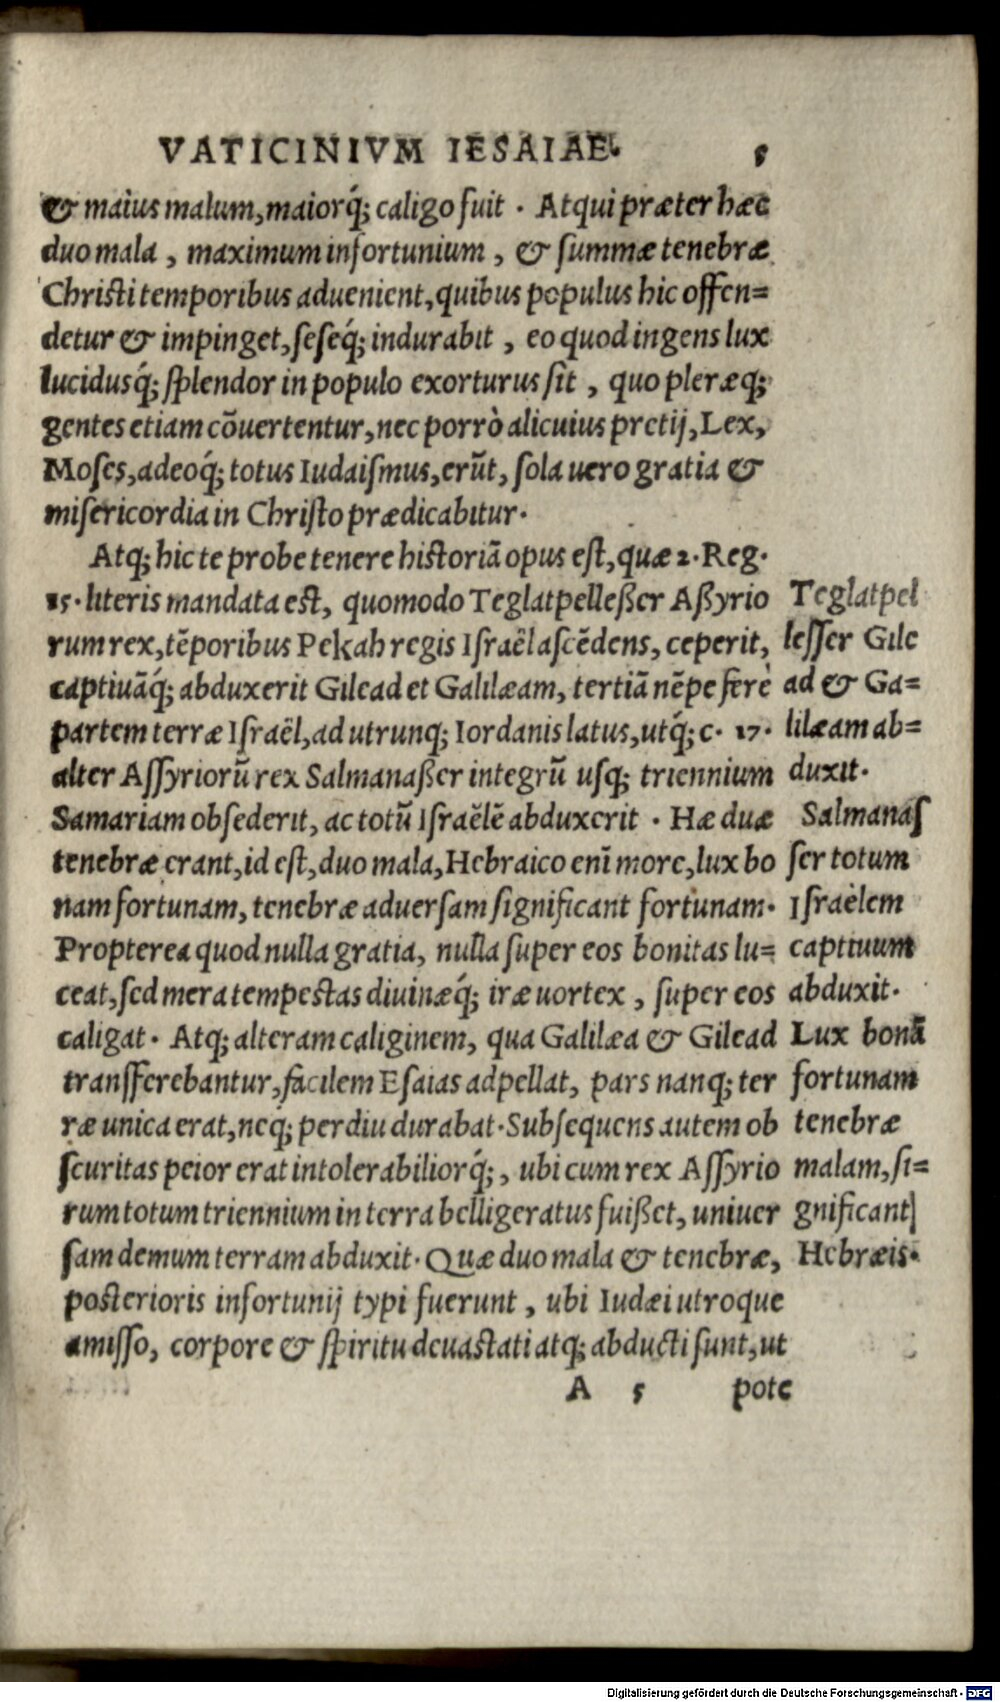 VATICINIVM IESAIAE. 5
& maius malum, maiorq́; caligo fuit. Atqui præter hæc
duo mala, maximum infortunium, & summæ tenebræ
Christi temporibus aduenient, quibus populus hic offen=
detur & impinget, seseq́; indurabit, eo quod ingens lux
lucidusq́; splendor in populo exorturus sit, quo pleræq;
gentes etiam cōuertentur, nec porrò alicuius pretij, Lex,
Moses, adeoq́; totus Iudaismus, erūt, sola uero gratia &
misericordia in Christo prædicabitur.
Atq; hic te probe tenere historiā opus est, quæ 2. Reg.
15. literis mandata est, quomodo Teglatpelleßer Aßyrio
rum rex, tēporibus Pekah regis Israël ascēdens, ceperit,
captiuāq́; abduxerit Gilead et Galilæam, tertiā nēpe ferè
partem terræ Israël, ad utrunq; Iordanis latus, utq́; c. 17.
alter Assyriorū rex Salmanaßer integrū usq; triennium
Samariam obsederit, ac totū Israëlē abduxerit. Hæ duæ
tenebræ erant, id est, duo mala, Hebraico enī more, lux bo
nam fortunam, tenebræ aduersam significant fortunam.
Propterea quod nulla gratia, nulla super eos bonitas lu=
ceat, sed mera tempestas diuinæq́; iræ uortex, super eos
caligat. Atq; alteram caliginem, qua Galilæa & Gilead
transferebantur, facilem Esaias adpellat, pars nanq; ter
ræ unica erat, neq́; perdiu durabat. Subsequens autem ob
scuritas peior erat intolerabiliorq́;, ubi cum rex Assyrio
rum totum triennium in terra belligeratus fuißet, uniuer
sam demum terram abduxit. Quæ duo mala & tenebræ,
posterioris infortunij typi fuerunt, ubi Iudæi utroque
amisso, corpore & spiritu deuastati atq; abducti sunt, ut
A 5 pote
Teglatpel
lesser Gile
ad & Ga=
lilæam ab=
duxit.
Salmanas
ser totum
Israëlem
captiuum
abduxit.
Lux bonā
fortunam
tenebræ
malam, si=
gnificant
Hebræis.
Digitalisierung gefördert durch die Deutsche Forschungsgemeinschaft - DFG